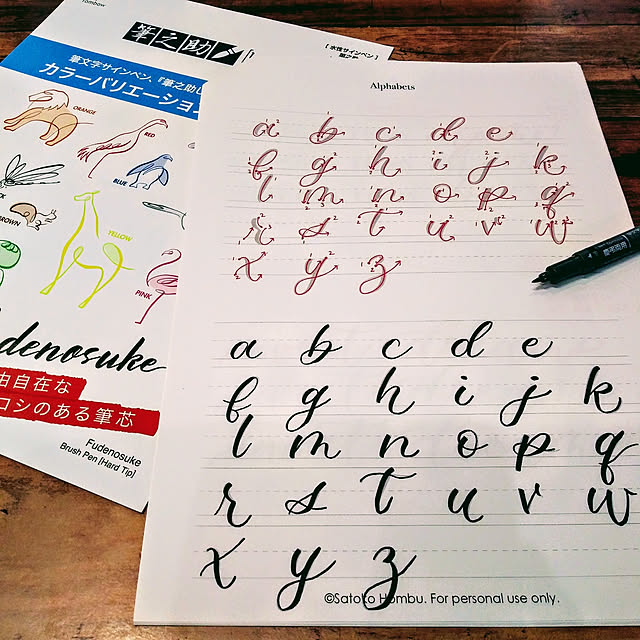 Tombow
筆之助
[水性サインペン]
筆文字サインペン、『筆之助し
カラーバリエーション
ORANGE
RED
BLUE
BROWN
YELLOW
PINK
denosuke
由自在な
コシのある筆芯
Fudenosuke
Brush Pen [Hard Tip]
Alphabets
a b c d e
f g h i j k
l m n o p q
r s t u v w
x y z
a b c d e
f g h i j k
l m n o p q
r s t u v w
x y z
©Satoko Hombu. For personal use only.